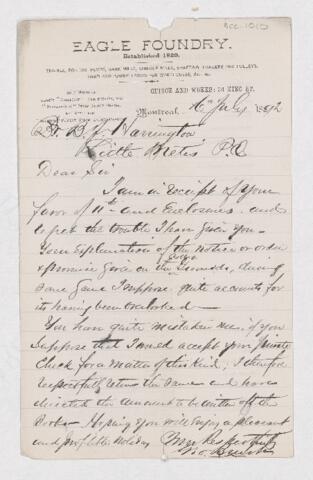 ACC-1010
EAGLE FOUNDRY.
Established 1820.
OFFICE AND WORKS: 34 KING ST.
Montreal, 16 July 1882
Dr B. J. Harrington
Little Metis P.Q
Dear Sir
I am in receipt of your
favor of 11th and Enclosures and
regret the trouble I have given you.
Your Explanation of the notice or order
& promise given on the during
some game I suppose quite accounts for
its having been overlooked—
You have quite mistaken me, if you
suppose that I would accept your private
Check for a matter of this kind, I therefore
respectfully return the same and have
directed the amount to be written off the
Books— Hoping you will enjoy a pleasant
and profitable Holiday
Yours Respectfully
Geo. Brush